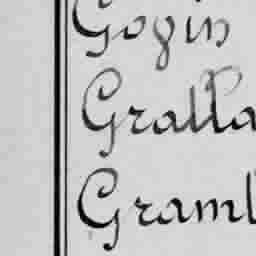 Gogin
Gralla
Graml